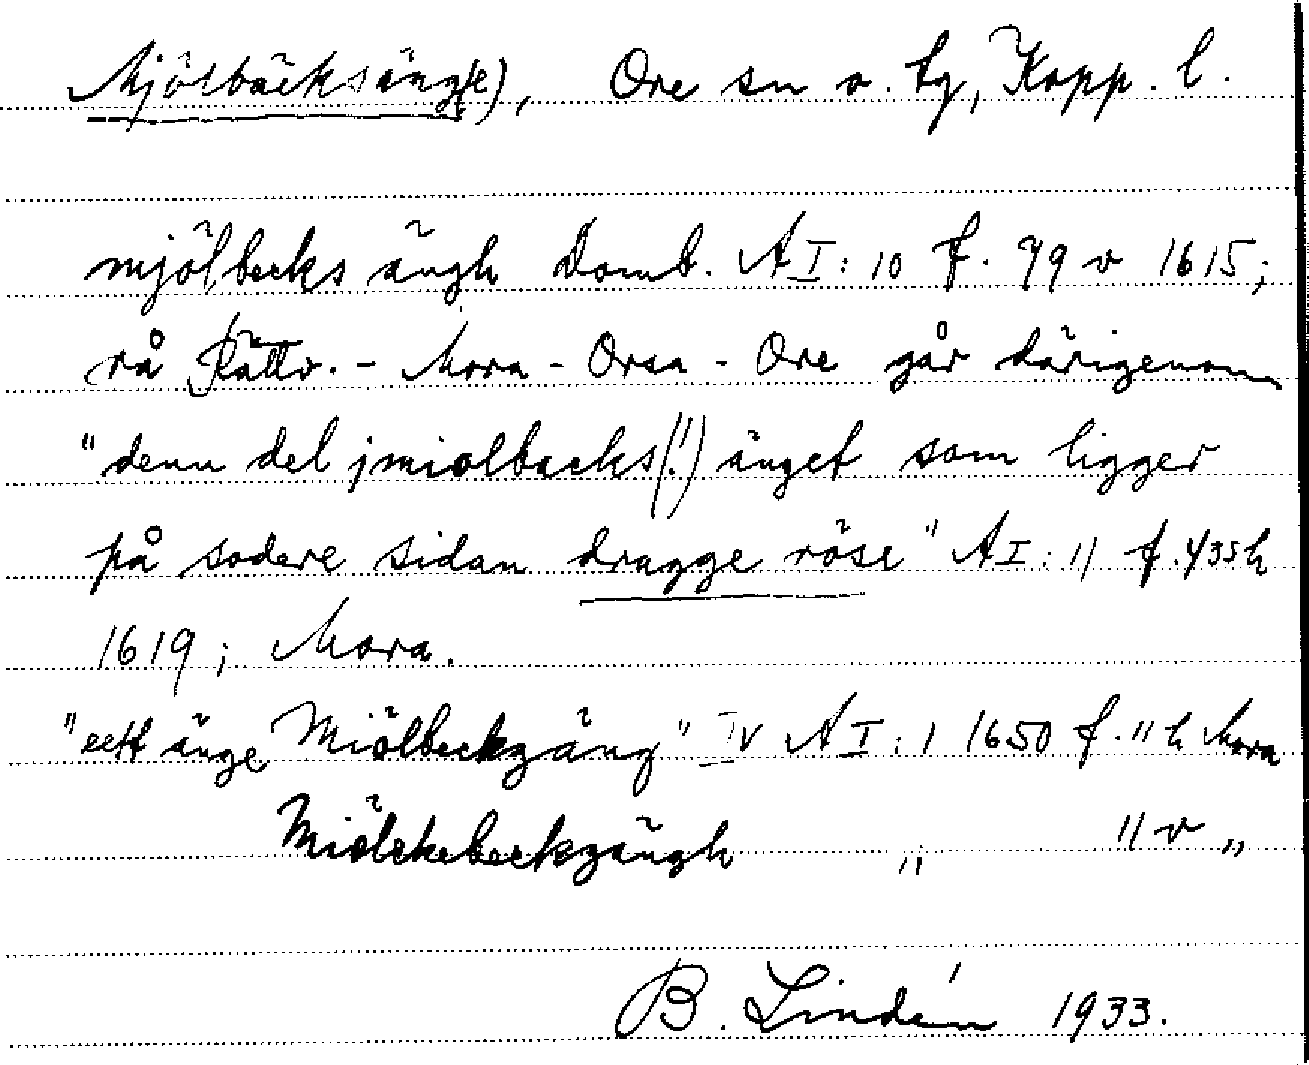 Mjölbäcksäng(e), Ore sn o. tg, Kopp. l.
mjölbecks ängh Domb. A I: 10 f. 79 v 1615;
rå Rättv. - Mora - Orsa - Ore går därigenom
"denn del jmiolbacks(!) änget som ligger
på sodere sidan dragge röse" A I: 11 f. 435 h
1619; Mora.
"eett änge Miölbeckzäng" IV A I: 1 1650 f. 11 h Mora
Miölckebeckzängh " 11 v "
B. Lindén 1933.